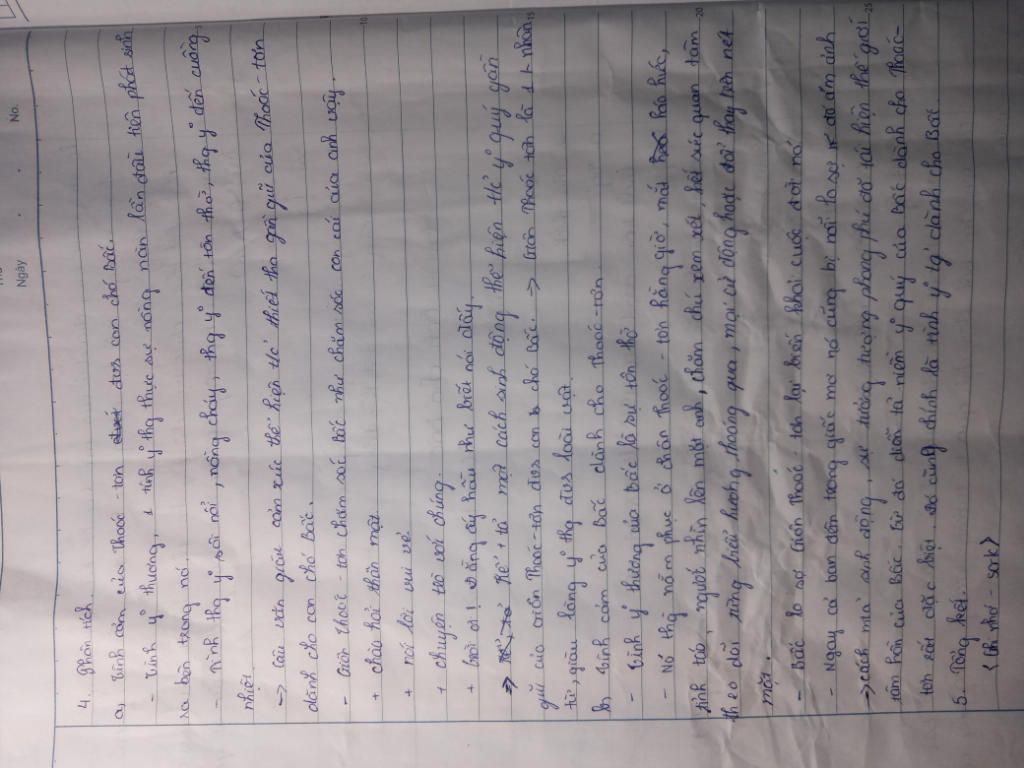 No.
Ngày
4. Phân tích.
a, Tình cảm của Thoóc-tơn đối với con chó Bấc.
- Tình y' thương, 1 tình y' thg thực sự nồng nàn lần đầu tiên phát sinh
ra bên trong nó.
- Tình thg y' sôi nổi, nồng cháy, thg y' đến tôn thờ, thg y' đến cuồng
nhiệt.
-> Câu văn giàu cảm xúc thể hiện t/c thiết tha gần gũi của Thoóc-tơn
dành cho con chó Bấc.
- Giôn Thoóc-tơn chăm sóc Bấc như chăm sóc con cái của anh vậy.
+ chào hỏi thân mật.
+ nói lời vui vẻ
+ chuyện trò với chúng.
+ trời ơi! đằng ấy hầu như biết nói đấy.
=> Kể, tả 1 cách sinh động thể hiện t/c y' quý gần
gũi của Giôn Thoóc-tơn đvs con chó Bấc -> Giôn Thoóc tơn là 1
từ, giàu lòng y' thg đvs loài vật.
b, Tình cảm của Bấc dành cho Thoóc-tơn.
- Tình y' thương của Bấc là sự tôn thờ
- Nó thg nằm phục ở chân Thoóc-tơn hàng giờ, mắt háo hức,
tỉnh táo ngước nhìn lên mặt anh, chăm chú xem xét, hết sức quan tâm
theo dõi từng biểu hiện thoáng qua, mọi cử động hoặc đổi thay trên nét
mặt.
- Bấc lo sợ Giôn Thoóc-tơn lại biến khỏi cuộc đời nó
- Ngay cả ban đêm trong giấc mơ nó cũng bị nỗi lo sợ ám ảnh
-> Cách mà sinh động, sự tưởng tượng phong phú đã tái hiện thế giới
tâm hồn của Bấc. Từ đó diễn tả niềm y' quý của Bấc dành cho Thoóc-
tơn rất đặc biệt. đó cũng chính là tình y' tg' dành cho Bấc.
5. Tổng kết.
(Ghi nhớ - SGK)